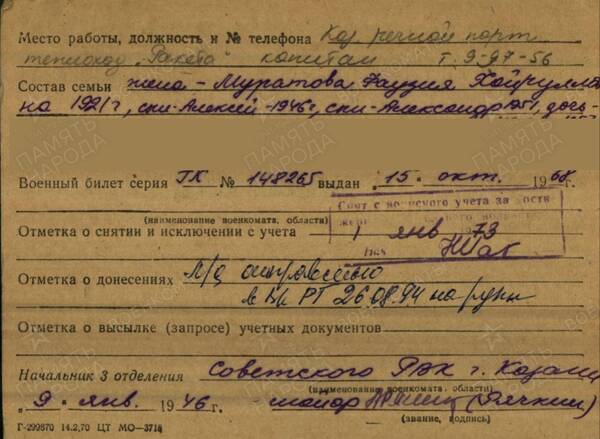 Место работы, должность и № телефона Каз. речной порт
теплоход „Ракета" капитан т. 9-97-56
Состав семьи жена - Муратова Фаузия Хайрулловна
на 1921 г, сын-Алексей-1946 г, сын-Александр 1951, дочь-
Военный билет серия ГК № 148265 выдан „15" окт. 1968 г.
(наименование военкомата, области)
Снят с воинского учета за
Отметка о снятии и исключении с учета 1 янв 73
Отметка о донесениях л/д
в ВК РТ 26.08.94 на руки
Отметка о высылке (запросе) учетных документов
Начальник 3 отделения Советского РВК г. Казани
(наименование военкомата, области)
„9" янв. 1946 г. майор
(звание, подпись)
Г-299870 14.2.70 ЦТ МО—3718
ПАМЯТЬ НАРОДА